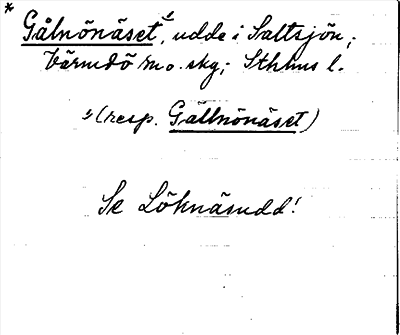 * Gålnönäset ¹⁾, udde i Saltsjön;
Värmdö sn o. skg; Sthlms l.
¹⁾ (resp. Gällnönäset)
Se Löknäsudd!